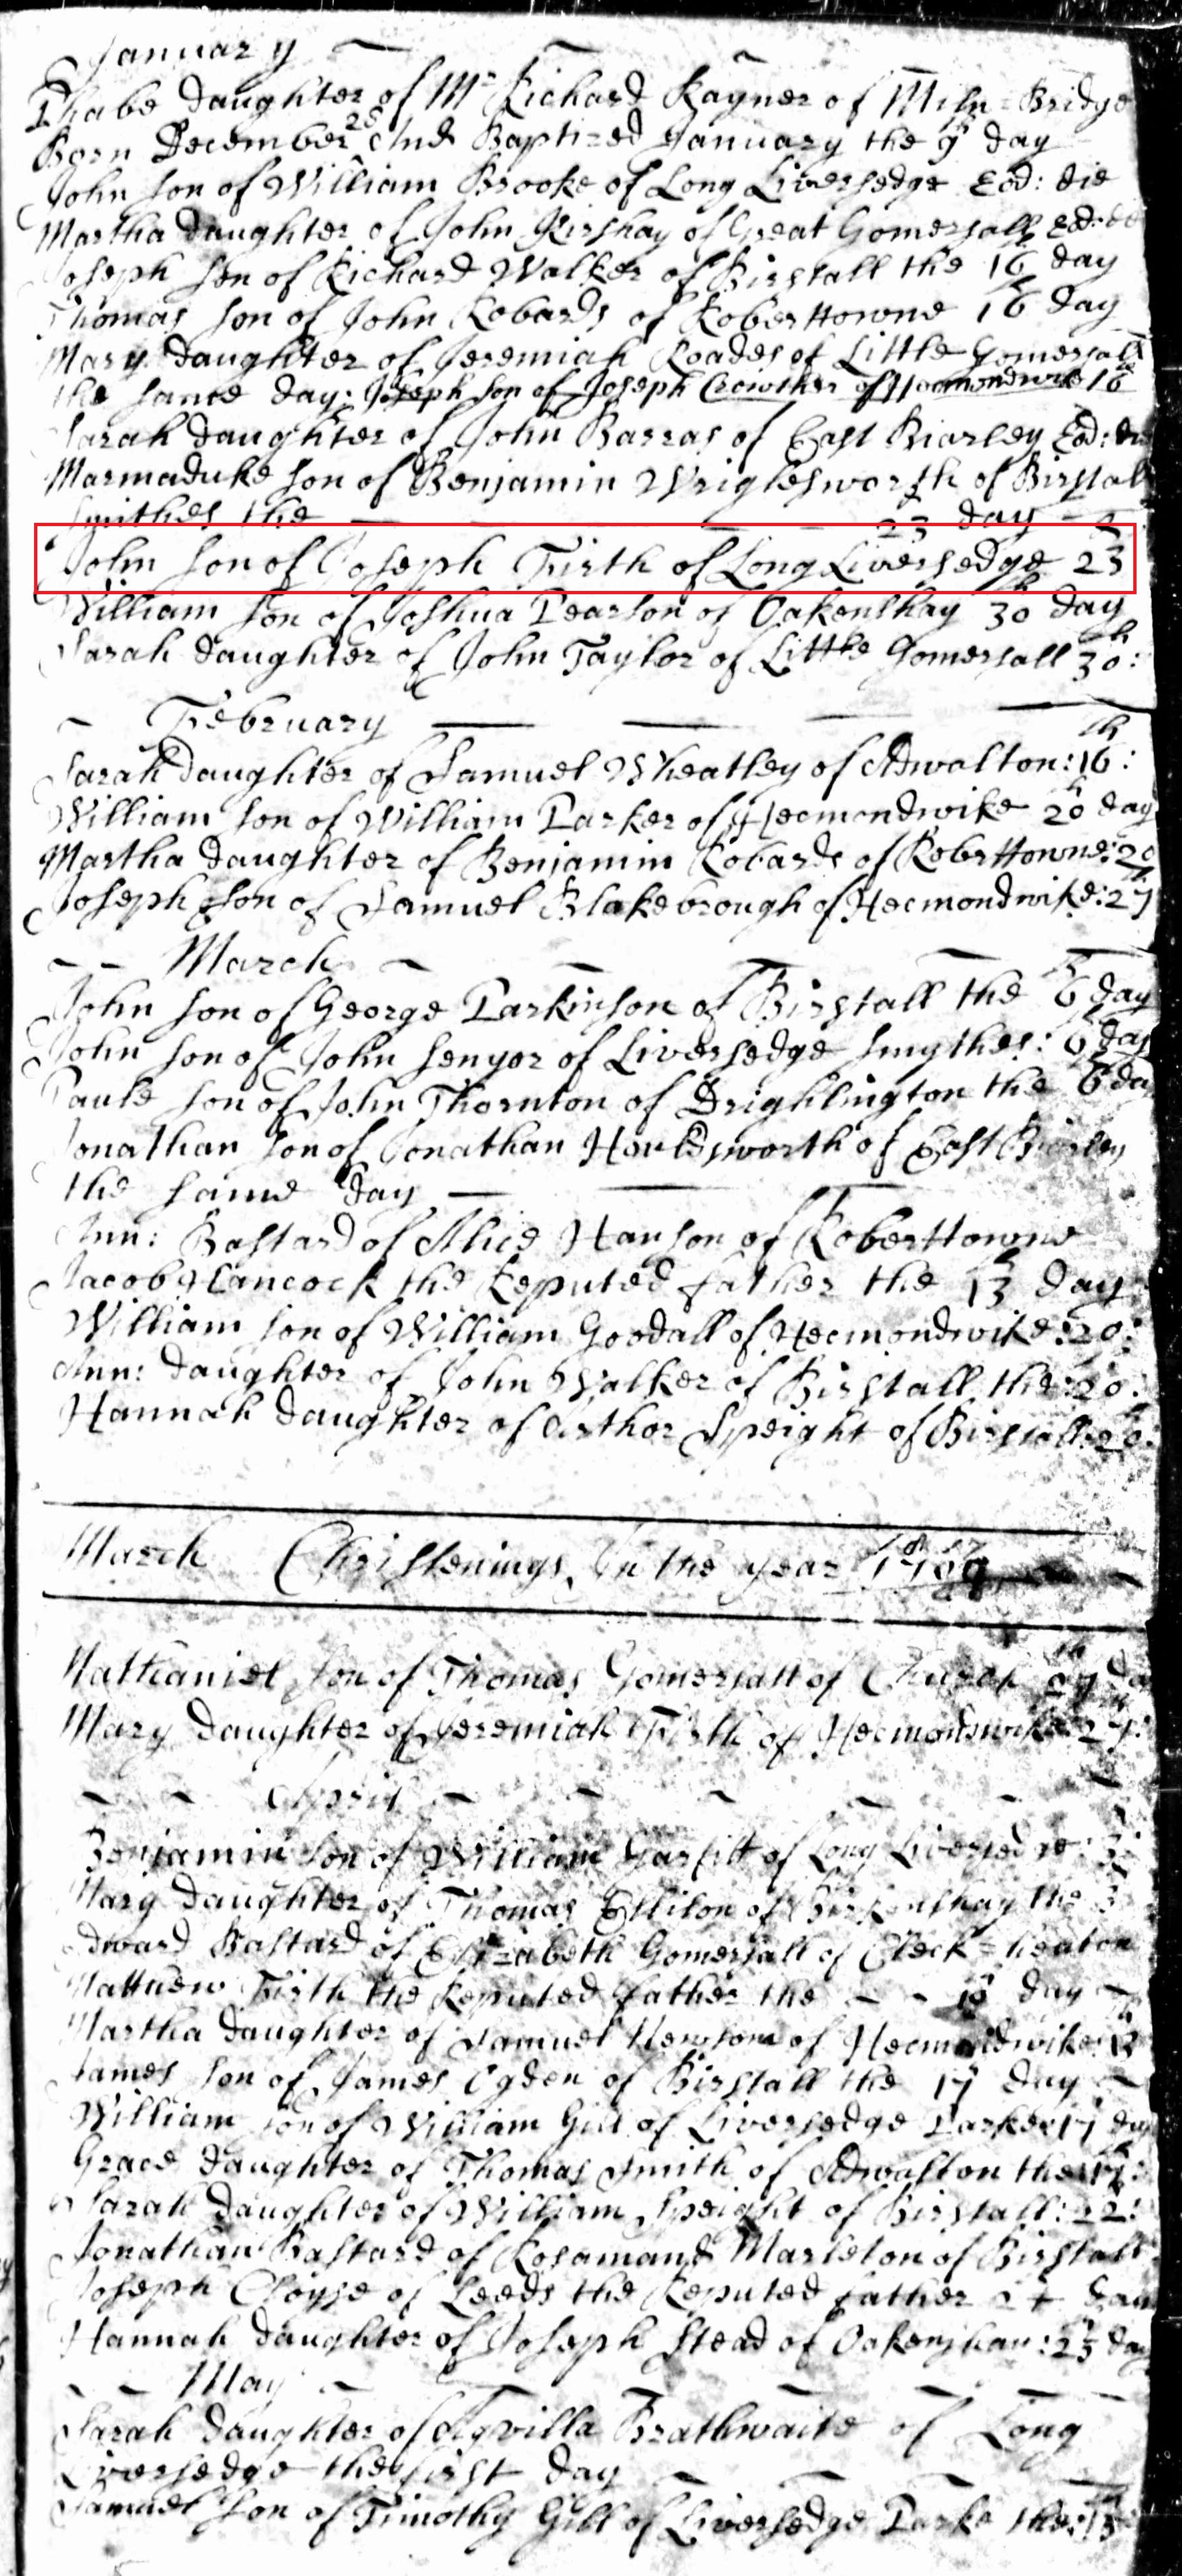 January
Phabe daughter of Mr Richard Rayner of Miln=Bridge
Born December 28 And Baptized January the 9 day
John son of William Brooke of Long Liversedge Eod: die
Martha daughter of John Kirshay of Great Gomersall Eod: di
Joseph son of Richard Walker of Birstall the 16 day
Thomas son of John Robards of Roberttowne 16 day
Mary daughter of Jeremiah Roades of Little Gomersall
the same day: Joseph son of Joseph Crowther of Hecmondwike 16
Sarah daughter of John Barras of East Biarley Eod: die
Marmaduke son of Benjamin Wriglesworth of Birstall
Smithes the 23 day
John son of Joseph Firth of Long Liversedge 23
William son of Joshua Pearson of Oakenshay 30th day
Sarah daughter of John Taylor of Little Gomersall 30th:
February
Sarah daughter of Samuel Wheatley of Adwalton: 16th:
William son of William Parker of Hecmondwike 20 day
Martha daughter of Benjamin Robards of Roberttowne: 20
Joseph son of Samuel Blakebrough of Hecmondwike: 27th
March
John son of George Parkinson of Birstall the 6th day
John son of John Senyor of Liversedge Smythes: 6 day
Paule son of John Thornton of Drighlington the 6 day
Jonathan son of Jonathan Houldsworth of East Biarley
the same day
Ann: Bastard of Alice Hanson of Roberttowne
Jacob Hancock the Reputed father the 13th day
William son of William Goodall of Hecmondwike: 20:
Ann: daughter of John Walker of Birstall the: 20:
Hannah daughter of Arthor Speight of Birstall: 20:
March Christenings In the year 1709
Nathaniel son of Thomas Gomersall of Church 27th da
Mary daughter of Jeremiah Firth of Hecmondwike: 27:
April
Benjamin son of William Garfitt of Long Liversedge: 3:
Mary daughter of Thomas Ellison of Birkenshay the 3
Edward Bastard of Elizabeth Gomersall of Cleck=heaton
Matthew Firth the Reputed father the 10 day
Martha daughter of Samuel Newsome of Hecmondwike:
James son of James Ogden of Birstall the 17 day
William son of William Gill of Liversedge Parke 17 day
Grace daughter of Thomas Smith of Adwalton the 17:
Sarah daughter of William Speight of Birstall: 22:
Jonathan Bastard of Rosamand Marleton of Birstall
Joseph Cloyse of Leeds the Reputed father 24 day
Hannah daughter of Joseph Stead of Oakenshaw: 25 day
May
Sarah daughter of Aqvilla Brathwaite of Long
Liversedge the first day
Samuel son of Timothy Gill of Liversedge Parke the: